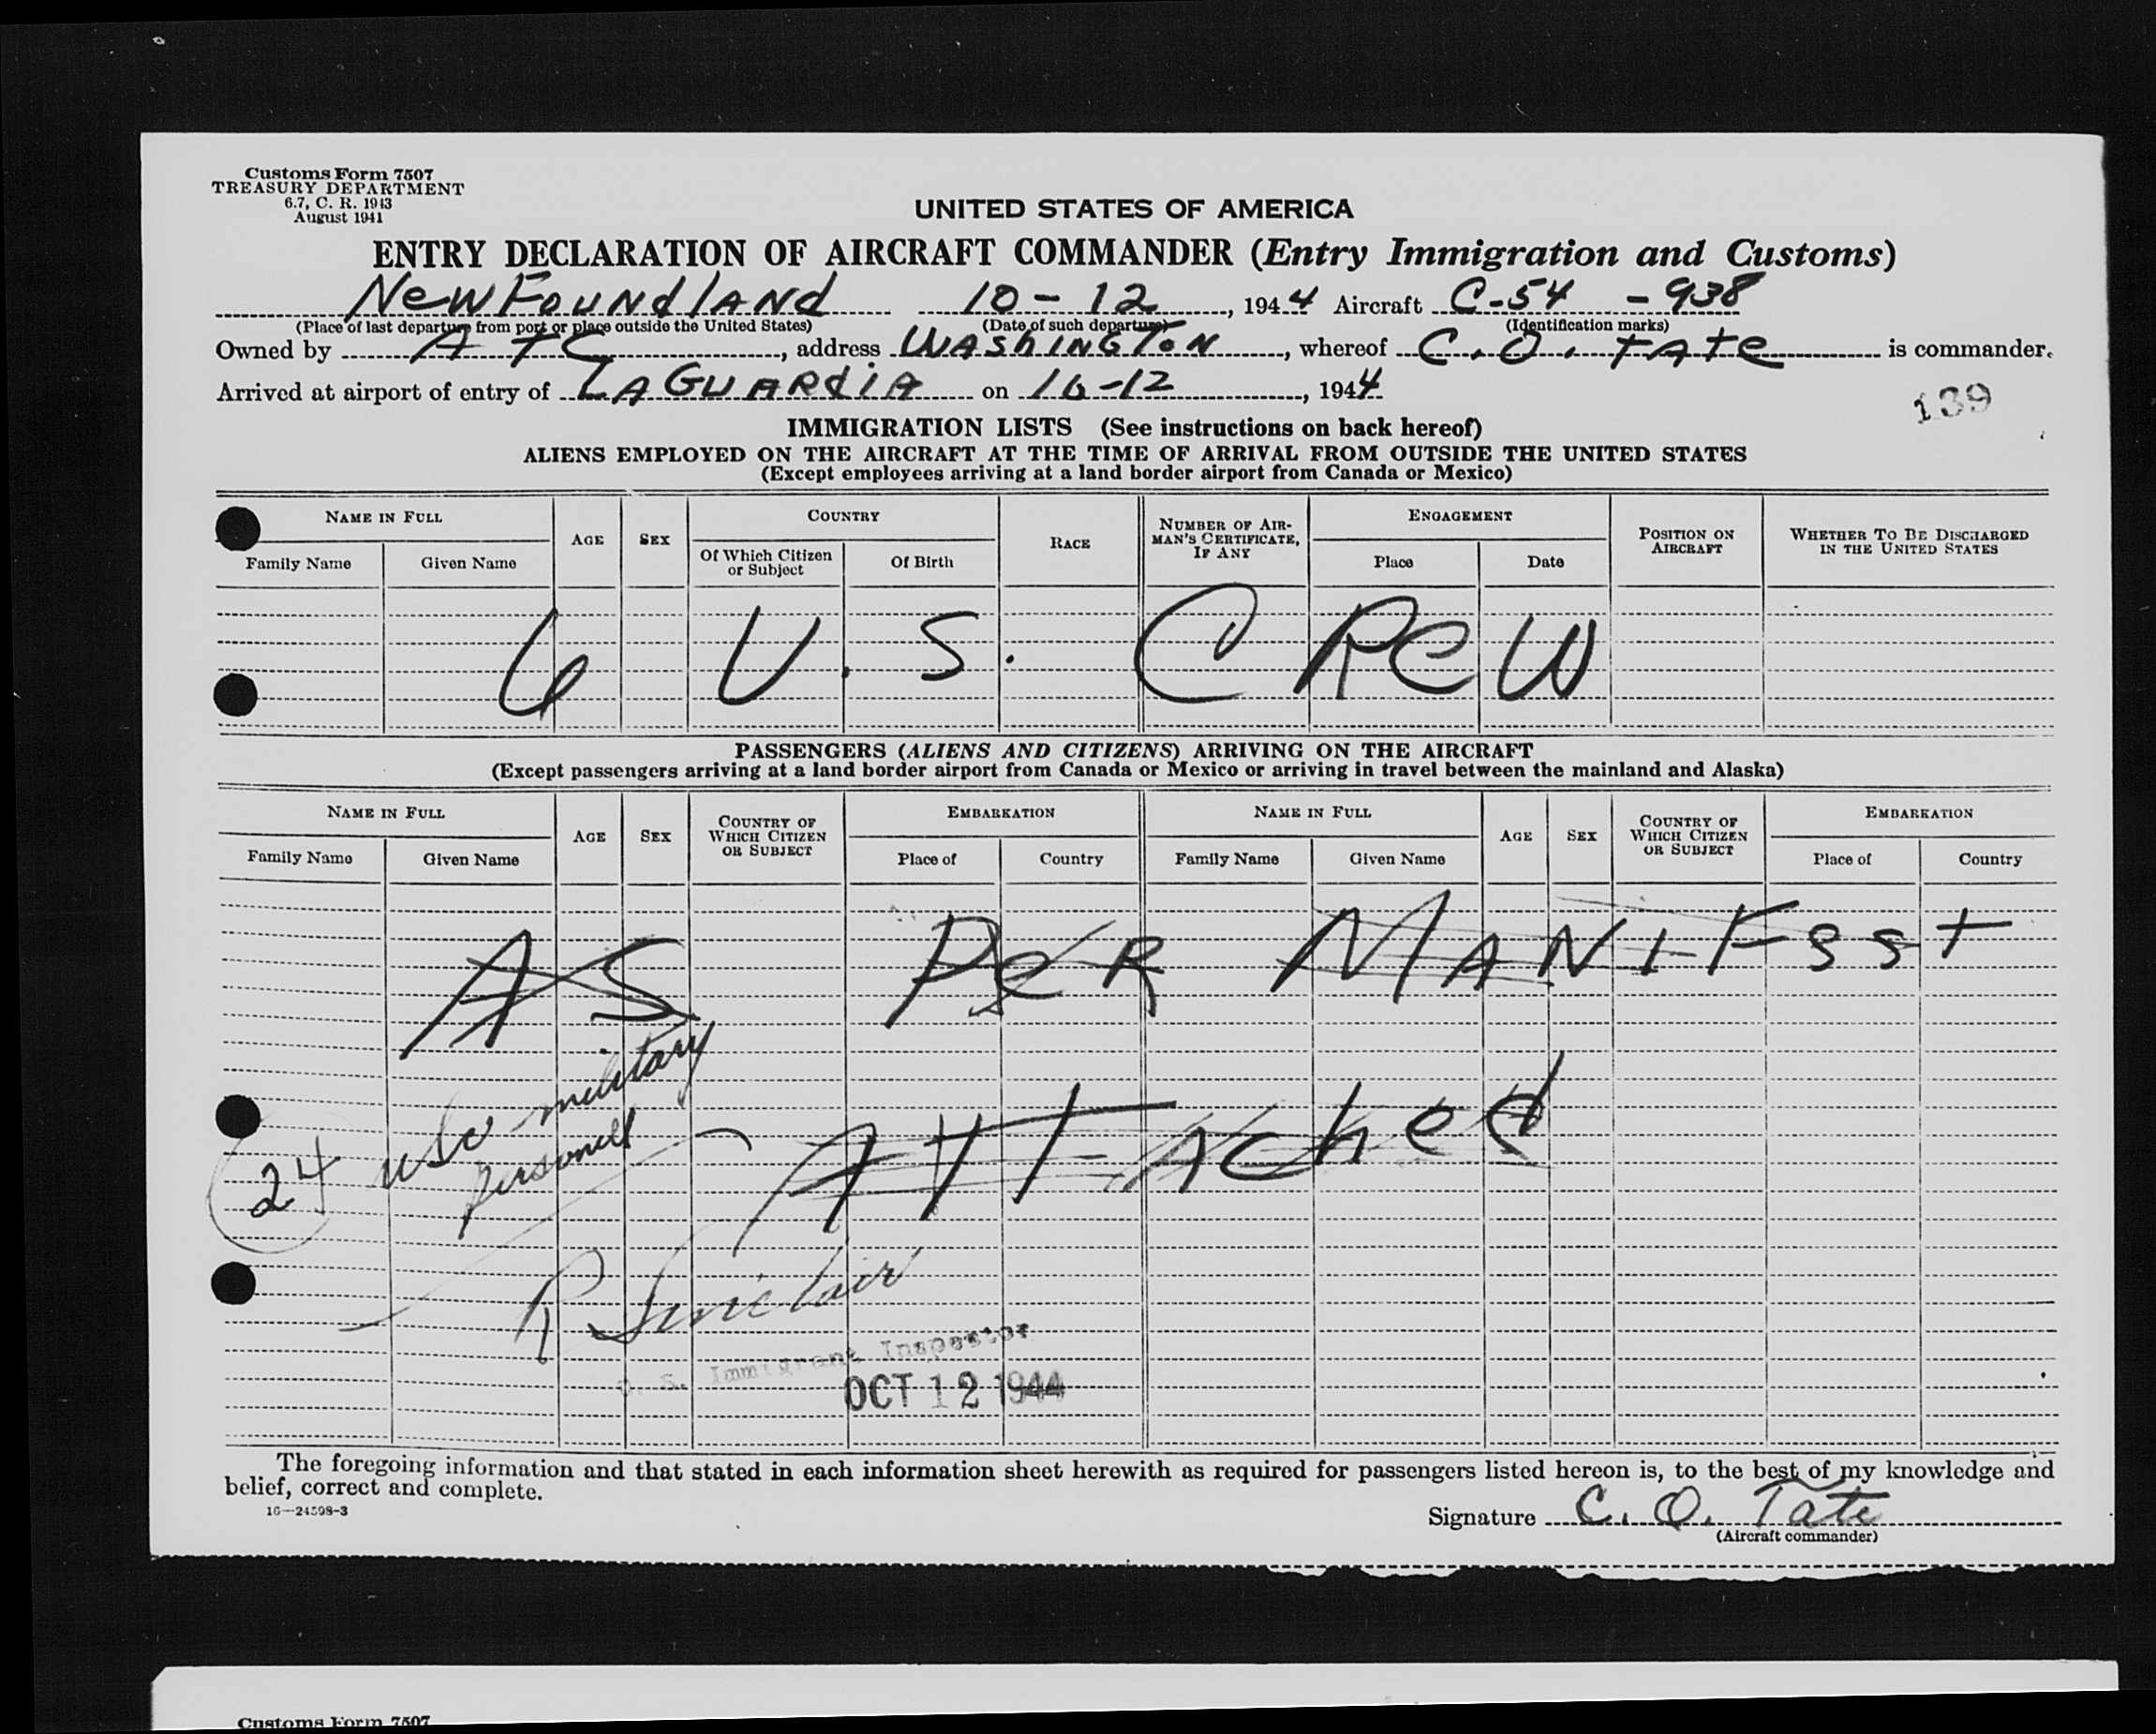 Customs Form 7507
TREASURY DEPARTMENT
6.7, C. R. 1943
August 1941
UNITED STATES OF AMERICA
ENTRY DECLARATION OF AIRCRAFT COMMANDER (Entry Immigration and Customs)
NewFoundland 10-12, 1944 Aircraft C-54 - 938
(Place of last departure from port or place outside the United States) (Date of such departure) (Identification marks)
Owned by ATC, address Washington, whereof C. O. Tate is commander.
Arrived at airport of entry of LaGuardia on 10-12, 1944
139
IMMIGRATION LISTS (See instructions on back hereof)
ALIENS EMPLOYED ON THE AIRCRAFT AT THE TIME OF ARRIVAL FROM OUTSIDE THE UNITED STATES
(Except employees arriving at a land border airport from Canada or Mexico)
NAME IN FULL AGE SEX COUNTRY RACE NUMBER OF AIRMAN'S CERTIFICATE, IF ANY ENGAGEMENT POSITION ON AIRCRAFT WHETHER TO BE DISCHARGED IN THE UNITED STATES
Family Name Given Name Of Which Citizen or Subject Of Birth Place Date
6 U. S. CREW
PASSENGERS (ALIENS AND CITIZENS) ARRIVING ON THE AIRCRAFT
(Except passengers arriving at a land border airport from Canada or Mexico or arriving in travel between the mainland and Alaska)
NAME IN FULL AGE SEX COUNTRY OF WHICH CITIZEN OR SUBJECT EMBARKATION NAME IN FULL AGE SEX COUNTRY OF WHICH CITIZEN OR SUBJECT EMBARKATION
Family Name Given Name Place of Country Family Name Given Name Place of Country
AS PER MANIFSST
24 USC military
personell
ATTAched
R Sinclair
U. S. Immigrant Inspector
OCT 12 1944
The foregoing information and that stated in each information sheet herewith as required for passengers listed hereon is, to the best of my knowledge and
belief, correct and complete.
16—24598-3
Signature C. O. Tate
(Aircraft commander)
Customs Form 7507